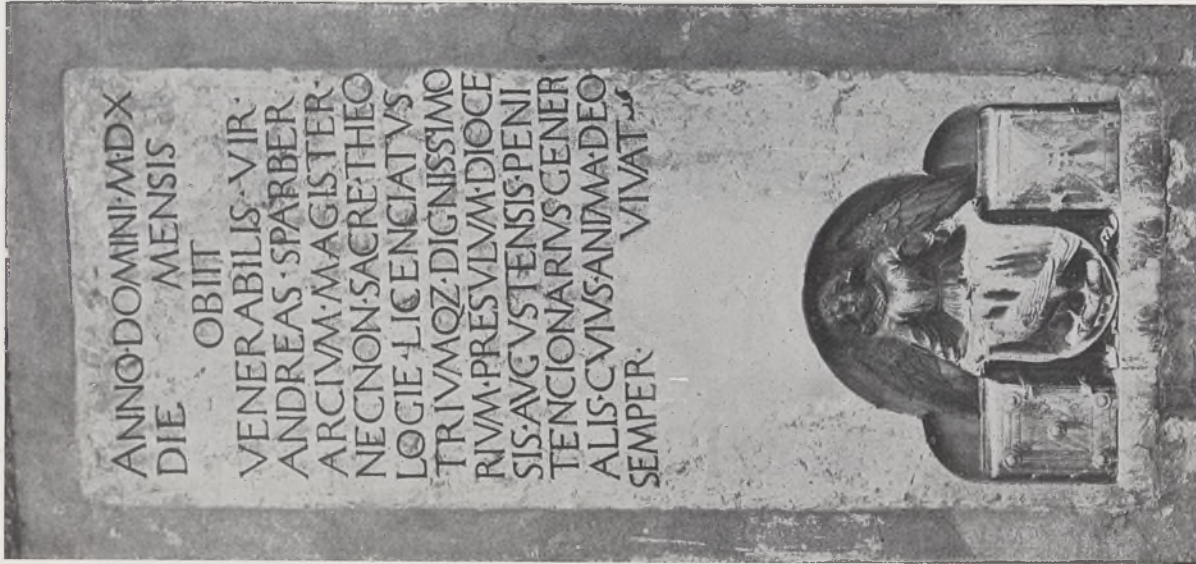 ANNO·DOMINI·M·DX
DIE MENSIS
OBIIT
VENERABILIS·VIR·
ANDREAS·SPARBER
ARCIVM·MAGISTER·
NECNON·SACRE·THEO
LOGIE·LICENCIATVS
TRIVMQZ·DIGNISSIMO
RIVM·PRESVLVM·DIOCE
SIS·AVGVSTENSIS·PENI
TENCIONARIVS·GENER
ALIS·CVIVS·ANIMA·DEO
SEMPER· VIVAT